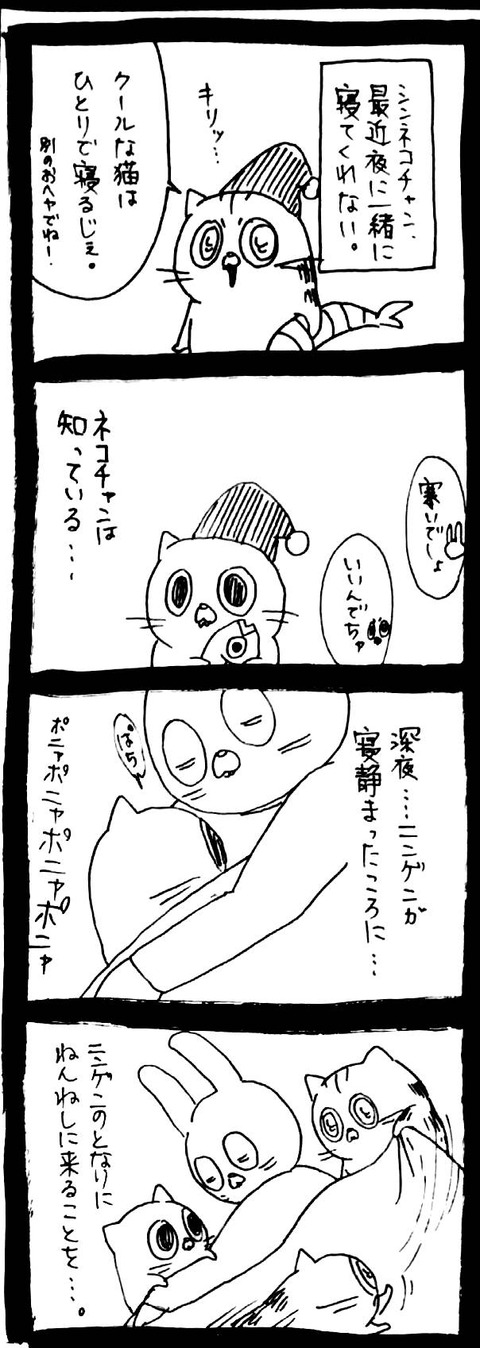 シンネコチャン、
最近夜に一緒に
寝てくれない。
キリッ…
クールな猫は
ひとりで寝るじぇ。
別のおヘヤでね!
寒いでしょ
いいんでちゃ
ネコチャンは
知っている…
深夜…ニンゲンが
寝静まったころに…
ぱちゃ
ポニャポニャポニャポニャ
ニンゲンのとなりに
ねんねしに来ることを…。